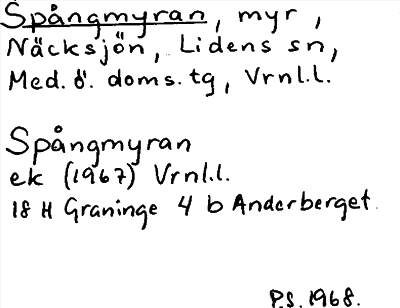 Spångmyran, myr,
Näcksjön, Lidens sn,
Med. ö. doms. tg, Vrnl.l.
Spångmyran
ek (1967) Vrnl.l.
18 H Graninge 4 b Anderberget
P.S. 1968.